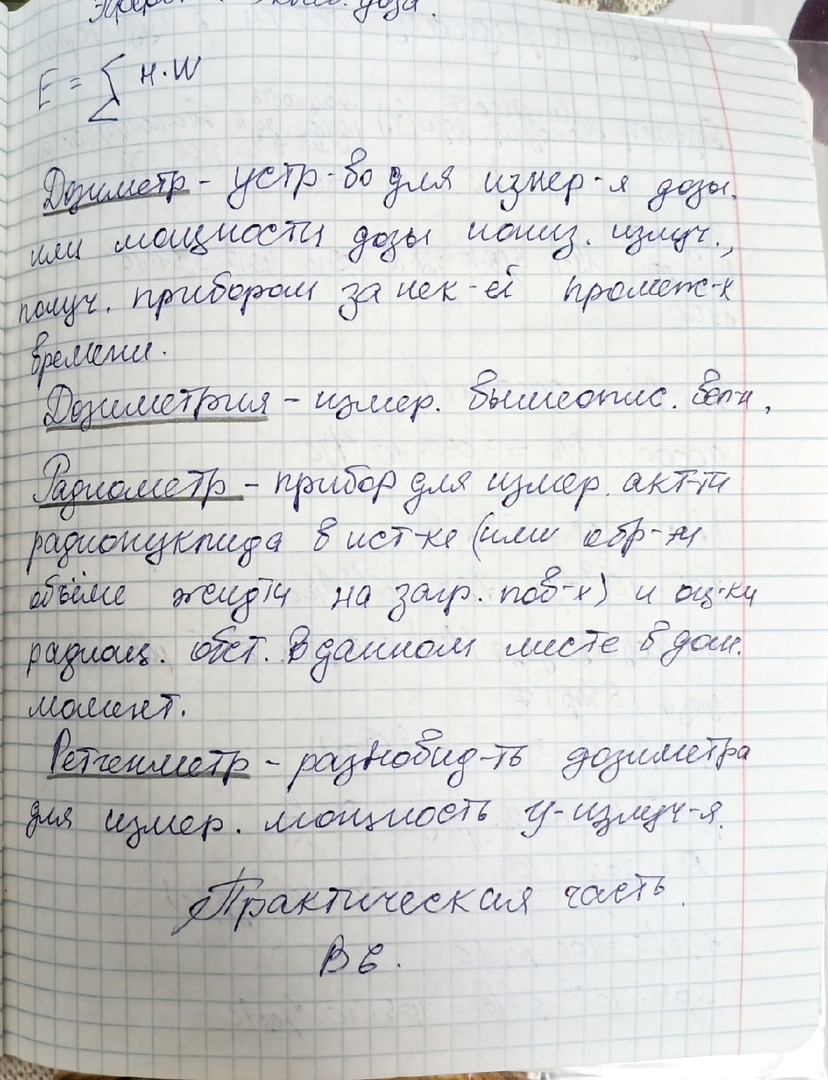 доза.
E = ∑ H·W
Дозиметр - устр-во для измер-я дозы
или мощности дозы иониз. излуч.,
получ. прибором за нек-ей промеж-к
времени.
Дозиметрия - измер. вышеопис. вел-н.
Радиометр - прибор для измер. акт-ти
радионуклида в ист-ке (или обр-зе
объёме жидти на загр. пов-х) и оц-ки
радиац. обст. В данном месте в дан.
момент.
Ретгенметр - разновид-ть дозиметра
для измер. мощность γ-излуч-я.
Практическая часть.
В 6.